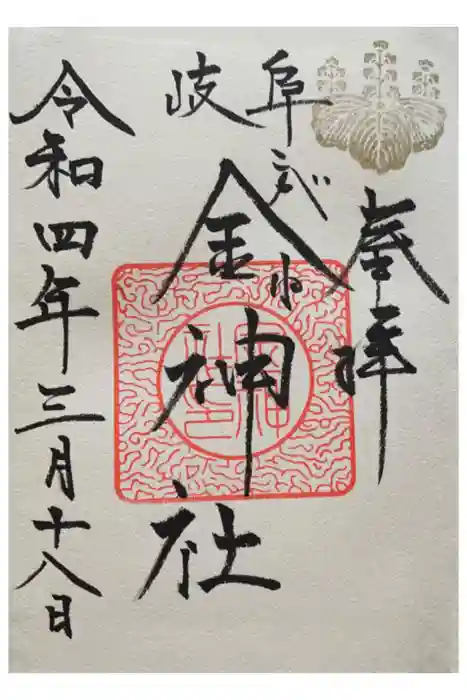 奉拝
岐阜
金神社
令和四年三月十八日